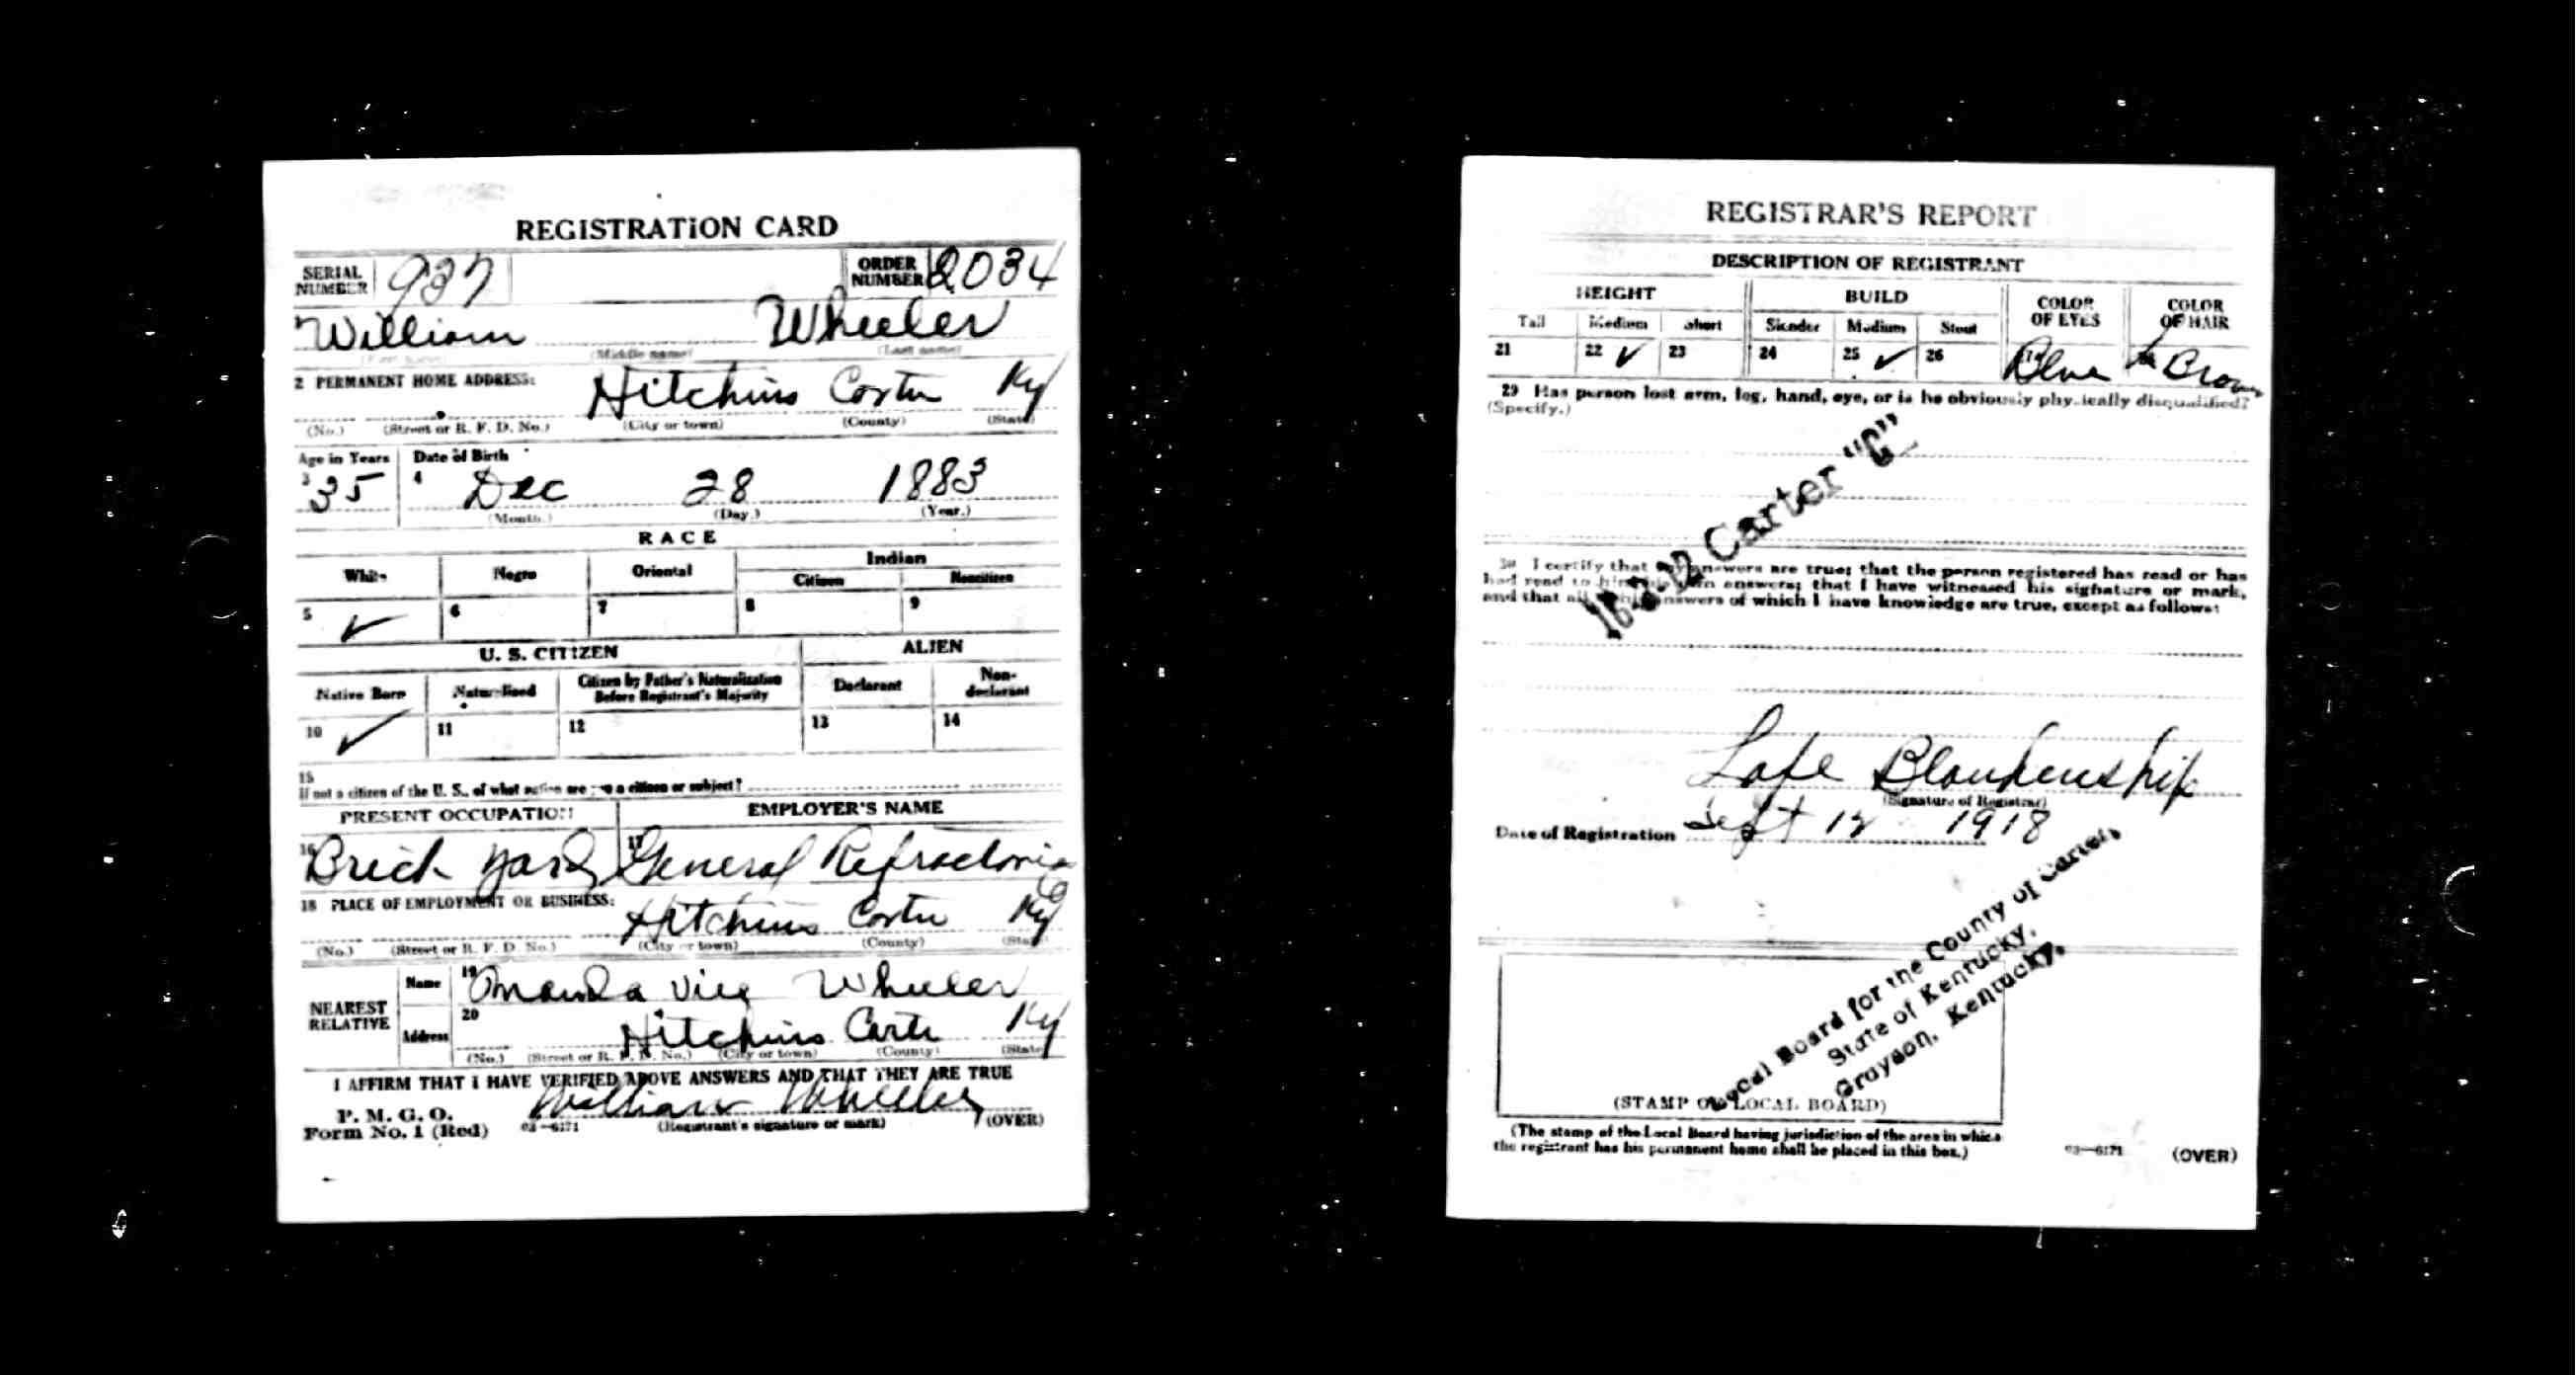 REGISTRATION CARD
SERIAL NUMBER 937 ORDER NUMBER 2034
1 William Wheeler
(First name) (Middle name) (Last name)
2 PERMANENT HOME ADDRESS:
Hitchins Carter Ky
(No.) (Street or R. F. D. No.) (City or town) (County) (State)
Age in Years Date of Birth
3 35 4 Dec 28 1883
(Month.) (Day.) (Year.)
RACE
White Negro Oriental Indian
Citizen Noncitizen
5 ✓ 6 7 8 9
U. S. CITIZEN ALIEN
Native Born Naturalized Citizen by Father's Naturalization Before Registrant's Majority Declarant Non-declarant
10 ✓ 11 12 13 14
15
If not a citizen of the U. S., of what nation are you a citizen or subject?
PRESENT OCCUPATION EMPLOYER'S NAME
16 Brick yard 17 General Refractories
18 PLACE OF EMPLOYMENT OR BUSINESS:
Hitchins Carter Ky
(No.) (Street or R. F. D. No.) (City or town) (County) (State)
NEAREST RELATIVE
Name 19 Wheeler
Address 20 Hitchins Carter Ky
(No.) (Street or R. F. D. No.) (City or town) (County) (State)
I AFFIRM THAT I HAVE VERIFIED ABOVE ANSWERS AND THAT THEY ARE TRUE
P. M. G. O.
Form No. 1 (Red) 03—6171 William Wheeler (OVER)
(Registrant's signature or mark)
REGISTRAR'S REPORT
DESCRIPTION OF REGISTRANT
HEIGHT BUILD COLOR OF EYES COLOR OF HAIR
Tall Medium Short Slender Medium Stout
21 22 ✓ 23 24 25 ✓ 26 Blue Brown
29 Has person lost arm, leg, hand, eye, or is he obviously physically disqualified?
(Specify.)
Carter "C"
30 I certify that my answers are true; that the person registered has read or has
had read to him his own answers; that I have witnessed his signature or mark,
and that all of his answers of which I have knowledge are true, except as follows:
Lafe Blankenship
(Signature of Registrar)
Date of Registration Sept 12 1918
Local Board for the County of Carter,
State of Kentucky,
Grayson, Kentucky.
(STAMP OF LOCAL BOARD)
(The stamp of the Local Board having jurisdiction of the area in which
the registrant has his permanent home shall be placed in this box.)
03—6171 (OVER)